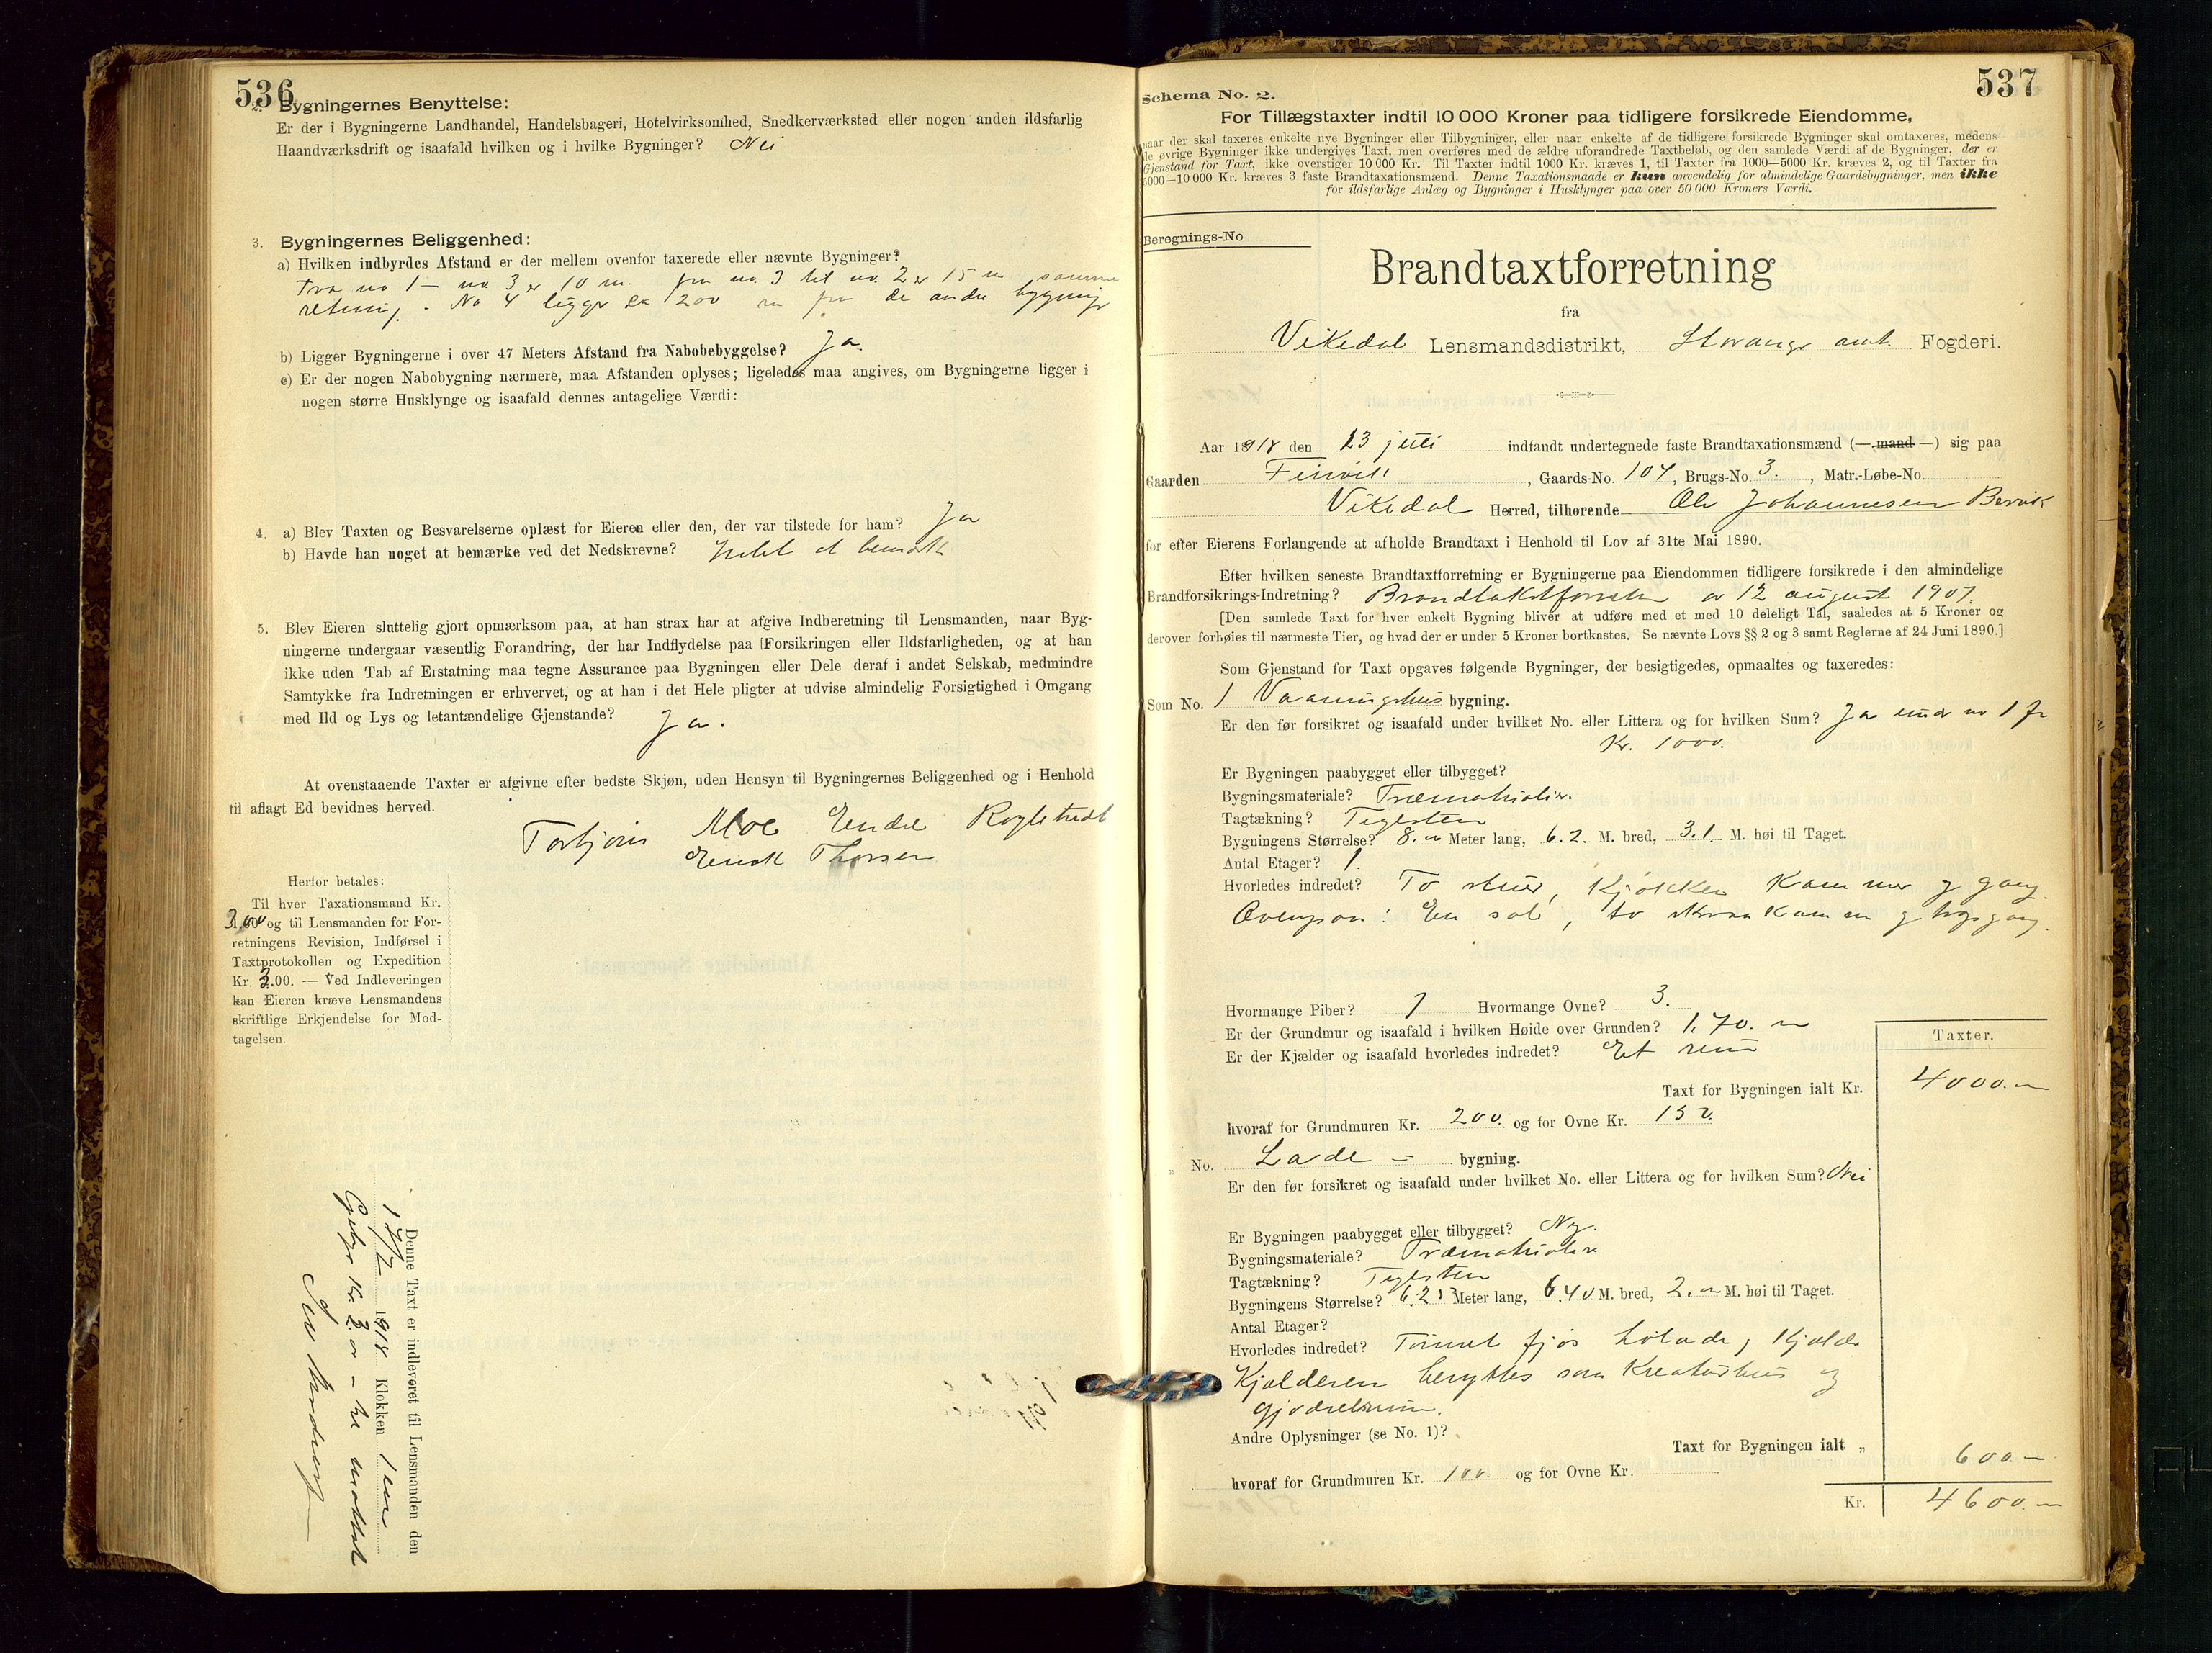 536
2. Bygningernes Benyttelse:
Er der i Bygningerne Landhandel, Handelsbageri, Hotelvirksomhed, Snedkerværksted eller nogen anden ildsfarlig
Haandværksdrift og isaafald hvilken og i hvilke Bygninger? Nei
3. Bygningernes Beliggenhed:
a) Hvilken indbyrdes Afstand er der mellem ovenfor taxerede eller nævnte Bygninger?
Fra no 1 – no. 3 er 10 m. fra no. 3 til no. 2 er 15 m samme
retning. No 4 ligger ca 200 m fra de andre bygninger
b) Ligger Bygningerne i over 47 Meters Afstand fra Nabobebyggelse? Ja.
c) Er der nogen Nabobygning nærmere, maa Afstanden oplyses; ligeledes maa angives, om Bygningerne ligger i
nogen større Husklynge og isaafald dennes antagelige Værdi:
4. a) Blev Taxten og Besvarelserne oplæst for Eieren eller den, der var tilstede for ham? Ja
b) Havde han noget at bemærke ved det Nedskrevne? Intet at bemærke
5. Blev Eieren sluttelig gjort opmærksom paa, at han strax har at afgive Indberetning til Lensmanden, naar Byg-
ningerne undergaar væsentlig Forandring, der har Indflydelse paa Forsikringen eller Ildsfarligheden, og at han
ikke uden Tab af Erstatning maa tegne Assurance paa Bygningen eller Dele deraf i andet Selskab, medmindre
Samtykke fra Indretningen er erhvervet, og at han i det Hele pligter at udvise almindelig Forsigtighed i Omgang
med Ild og Lys og letantændelige Gjenstande? Ja.
At ovenstaaende Taxter er afgivne efter bedste Skjøn, uden Hensyn til Bygningernes Beliggenhed og i Henhold
til aflagt Ed bevidnes herved.
Torbjørn Moe Endre
Thorsen
Herfor betales:
Til hver Taxationsmand Kr.
3.00 og til Lensmanden for For-
retningens Revision, Indførsel i
Taxtprotokollen og Expedition
Kr. 3.00. — Ved Indleveringen
kan Eieren kræve Lensmandens
skriftlige Erkjendelse for Mod-
tagelsen.
Denne Taxt er indleveret til Lensmanden den
17/7 1918 Klokken 1 em
Gebyr Kr. 3.00 – er mottat
537
Schema No. 2.
For Tillægstaxter indtil 10 000 Kroner paa tidligere forsikrede Eiendomme,
naar der skal taxeres enkelte nye Bygninger eller Tilbygninger, eller naar enkelte af de tidligere forsikrede Bygninger skal omtaxeres, medens
de øvrige Bygninger ikke undergives Taxt, men overføres med de ældre uforandrede Taxtbeløb, og den samlede Værdi af de Bygninger, der er
Gjenstand for Taxt, ikke overstiger 10 000 Kr. Til Taxter indtil 1000 Kr. kræves 1, til Taxter fra 1000—5000 Kr. kræves 2, og til Taxter fra
5000—10 000 Kr. kræves 3 faste Brandtaxationsmænd. Denne Taxationsmaade er kun anvendelig for almindelige Gaardsbygninger, men ikke
for ildsfarlige Anlæg og Bygninger i Husklynger paa over 50 000 Kroners Værdi.
Beregnings-No
Brandtaxtforretning
fra
Vikedal Lensmandsdistrikt, Stavanger amt. Fogderi.
Aar 1918 den 13 juli indfandt undertegnede faste Brandtaxationsmænd (— mand —) sig paa
Gaarden , Gaards-No. 104, Brugs-No. 3. , Matr.-Løbe-No.
Vikedal Herred, tilhørende Ole Johannesen
for efter Eierens Forlangende at afholde Brandtaxt i Henhold til Lov af 31te Mai 1890.
Efter hvilken seneste Brandtaxtforretning er Bygningerne paa Eiendommen tidligere forsikrede i den almindelige
Brandforsikrings-Indretning? av 12 august 1907.
[Den samlede Taxt for hver enkelt Bygning bliver at udføre med et med 10 deleligt Tal, saaledes at 5 Kroner og
derover forhøies til nærmeste Tier, og hvad der er under 5 Kroner bortkastes. Se nævnte Lovs §§ 2 og 3 samt Reglerne af 24 Juni 1890.]
Som Gjenstand for Taxt opgaves følgende Bygninger, der besigtigedes, opmaaltes og taxeredes:
Som No. 1 Vaaningshus bygning.
Er den før forsikret og isaafald under hvilket No. eller Littera og for hvilken Sum? Ja under no 1 for
Kr. 1000.
Er Bygningen paabygget eller tilbygget?
Bygningsmateriale? Træmaterialer.
Tagtækning? Teglsten
Bygningens Størrelse? 8.00 Meter lang, 6.2. M. bred, 3.1 M. høi til Taget.
Antal Etager? 1.
Hvorledes indredet? To stuer, Kjøkken Kammer og gang.
Ovenpaa: En sal, to skraakammer og gang.
Hvormange Piber? 1 Hvormange Ovne? 3.
Er der Grundmur og isaafald i hvilken Høide over Grunden? 1.70. m
Er der Kjælder og isaafald hvorledes indredet? Et rum
Taxter.
Taxt for Bygningen ialt Kr. 4000.–
hvoraf for Grundmuren Kr. 200. og for Ovne Kr. 150.
„ No. Lade – bygning.
Er den før forsikret og isaafald under hvilket No. eller Littera og for hvilken Sum? Nei
Er Bygningen paabygget eller tilbygget? Ny.
Bygningsmateriale? Træmaterialer
Tagtækning? Teglsten
Bygningens Størrelse? 6.25 Meter lang, 6.40 M. bred, 2.00 M. høi til Taget.
Antal Etager?
Hvorledes indredet? Tømret fjøs, Kjælder
Kjælderen benyttes som Kreaturhus og
gjødselrum.
Andre Oplysninger (se No. 1)?
Taxt for Bygningen ialt „ 600.–
hvoraf for Grundmuren Kr. 100. og for Ovne Kr.
Kr. 4600.–